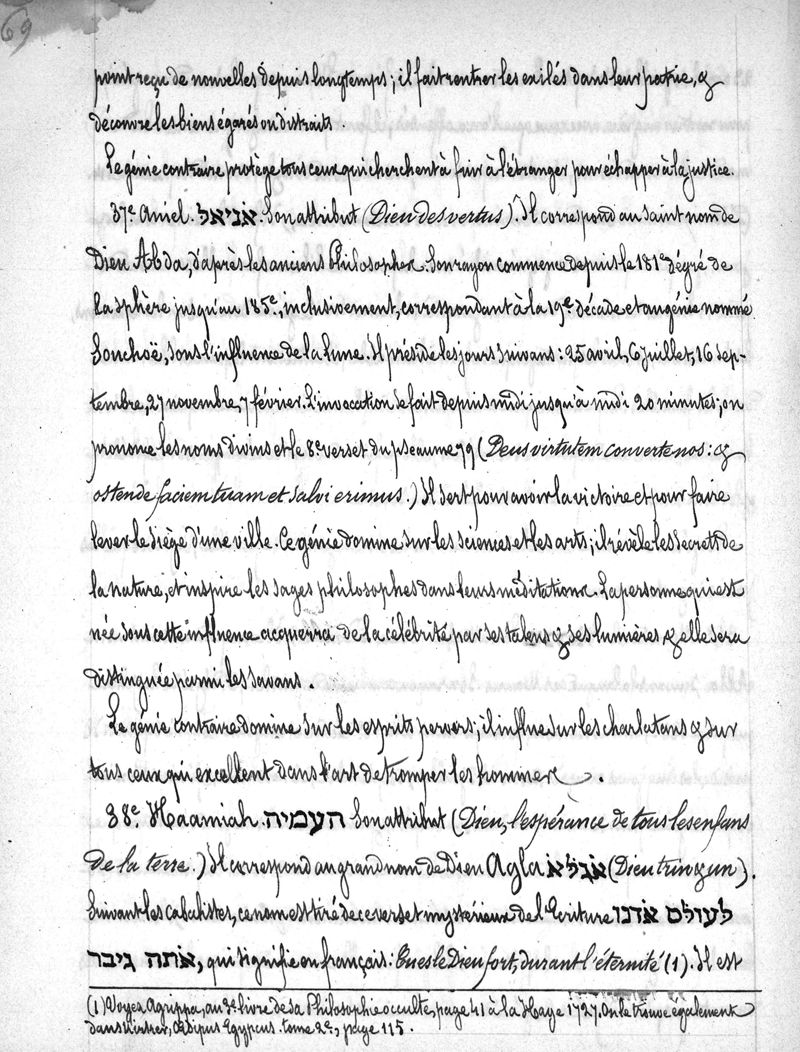 69
point reçu de nouvelles depuis longtemps; il fait rentrer les exilés dans leur patrie, &
découvre les biens égarés ou distraits.
Le génie contraire protège tous ceux qui cherchent à fuir à l'étranger pour échapper à la justice.
37e. Aniel. אניאל. Son attribut (Dieu des vertus). Il correspond au saint nom de
Dieu Abda, d'après les anciens Philosophes. Son rayon commence depuis le 181e dégré de
la sphère jusqu'au 185e., inclusivement, correspondant à la 19e. décade et au génie nommé
Souchoë, sous l'influence de la lune. Il préside les jours suivans: 25 avril, 6 juillet, 16 sep-
tembre, 27 novembre, 7 février. L'invocation se fait depuis midi jusqu'à midi 20 minutes; on
prononce les noms divins et le 8e. verset du pseaume 79 (Deus virtutem converte nos: &
ostende faciem tuam et salvi erimus.) Il sert pour avoir la victoire et pour faire
lever le siège d'une ville. Ce génie domine sur les sciences et les arts; il révèle les secrets de
la nature, et inspire les sages philosophes dans leurs méditations. La personne qui est
née sous cette influence acquerra de la célébrité par ses talens & ses lumières & elle sera
distinguée parmi les savans.
Le génie contraire domine sur les esprits pervers; il influe sur les charlatans & sur
tous ceux qui excellent dans l'art de tromper les hommes.
38e. Haamiah. העמיה Son attribut (Dieu, l'espérance de tous les enfans
de la terre.) Il correspond au grand nom de Dieu Agla אגלא (Dieu trin & un).
Suivant les cabalistes, ce nom est tiré de ce verset mystérieux de l'Ecriture לעולם אדנו
אתה גיבר, qui signifie en français: Tu es le Dieu fort, durant l'éternité (1). Il est
(1) Voyez Agrippa, au 3e. livre de sa Philosophie occulte, page 41 à la Haye 1727. On le trouve également
dans Kirker, Œdipus Egypcus. tome 2e., page 115.